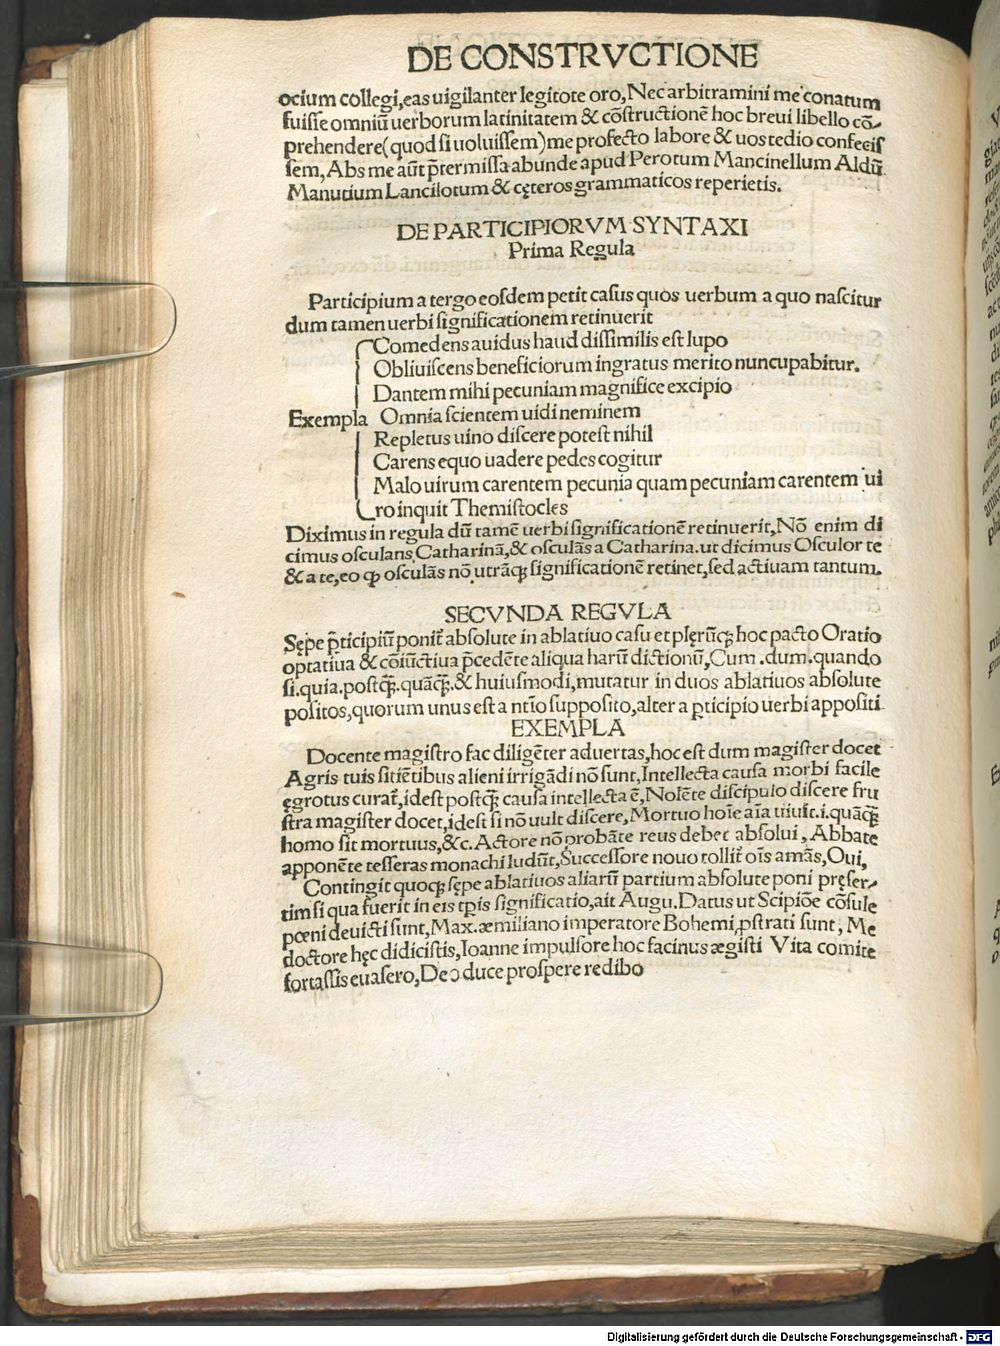 DE CONSTRVCTIONE
ocium collegi, eas uigilanter legitote oro, Nec arbitramini me conatum
fuiſſe omniũ uerborum latinitatem & cõſtructionẽ hoc breui libello cõ-
prehendere (quod ſi uoluiſſem) me profecto labore & uos tedio confeciſ
ſem, Abs me aũt p̃termiſſa abunde apud Perotum Mancinellum Aldũ
Manutium Lancilotum & cęteros grammaticos reperietis.
DE PARTICIPIORVM SYNTAXI
Prima Regula
Participium a tergo eoſdem petit caſus quos uerbum a quo naſcitur
dum tamen uerbi ſignificationem retinuerit
Comedens auidus haud diſſimilis eſt lupo
Obliuiſcens beneficiorum ingratus merito nuncupabitur.
Dantem mihi pecuniam magnifice excipio
Exempla Omnia ſcientem uidi neminem
Repletus uino diſcere poteſt nihil
Carens equo uadere pedes cogitur
Malo uirum carentem pecunia quam pecuniam carentem ui
ro inquit Themiſtocles
Diximus in regula dũ tamẽ uerbi ſignificationẽ retinuerit, Nõ enim di
cimus oſculans Catharinã, & oſculãs a Catharina. ut dicimus Oſculor te
& a te, eo ꝙ oſculãs nõ utrãqꝫ ſignificationẽ retinet, ſed actiuam tantum.
SECVNDA REGVLA
Sępe p̃ticipiũ ponit᷑ abſolute in ablatiuo caſu et plęrũqꝫ hoc pacto Oratio
optatiua & cõiũctiua p̃cedẽte aliqua harũ dictionũ, Cum .dum. quando
ſi. quia. poſtqꝫ̃. quãqꝫ̃. & huiuſmodi, mutatur in duos ablatiuos abſolute
poſitos, quorum unus eſt a ntĩo ſuppoſito, alter a ꝑticipio uerbi appoſiti
EXEMPLA
Docente magiſtro fac diligẽter aduertas, hoc eſt dum magiſter docet
Agris tuis ſitiẽtibus alieni irrigãdi nõ ſunt, Intellecta cauſa morbi facile
ęgrotus curat᷑, ideſt poſtqꝫ̃ cauſa intellecta ẽ, Nolẽte diſcipulo diſcere fru
ſtra magiſter docet, ideſt ſi nõ uult diſcere, Mortuo hoĩe aĩa uiuit. i. quãqꝫ̃
homo ſit mortuus, &c. Actore nõ probãte reus debet abſolui, Abbate
apponẽte teſſeras monachi ludũt, Succeſſore nouo tollit᷑ oĩs amãs, Oui,
Contingit quoqꝫ ſępe ablatiuos aliarũ partium abſolute poni pręſer-
tim ſi qua fuerit in eis tp̃is ſignificatio, ait Augu. Datus ut Scipiõe cõſule
pœni deuicti ſunt, Max. æmiliano imperatore Bohemi, ꝓſtrati ſunt, Me
doctore hęc didiciſtis, Ioanne impulſore hoc facinus ægiſti Vita comite
fortaſſis euaſero, Deo duce proſpere redibo
Digitalisierung gefördert durch die Deutsche Forschungsgemeinschaft - DFG